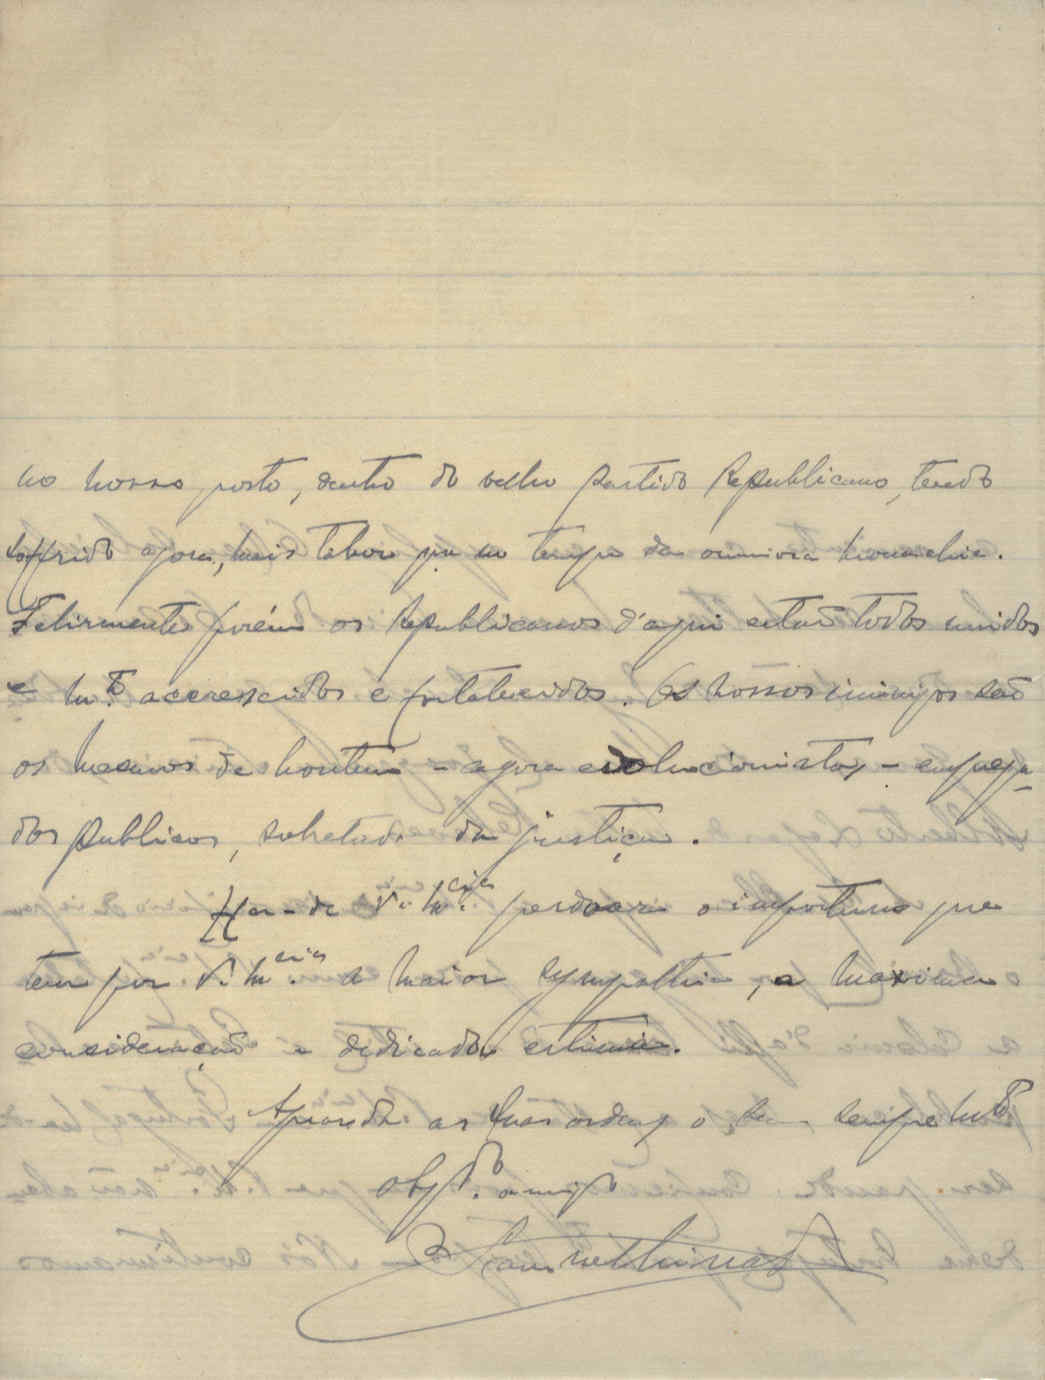 no nosso posto, dentro do velho Partido Republicano, tendo
soffrido agora, mais talvez que no tempo da omnivora monarchia.
Felizmente porém os Republicanos d'aqui estão todos unidos
e m.to accrescidos e fortalecidos. Os nossos inimigos são
os mesmos de hontem - agora evolucionistas - emprega-
dos publicos, sobretudo da justiça.
Ha-de V. M.cias perdoar o importuno que
tem por V. M.cias a maior sympathia, a maxima
consideração e dedicada estima.
Aguarda as suas ordens o seu sempre m.to
obg.do amigo